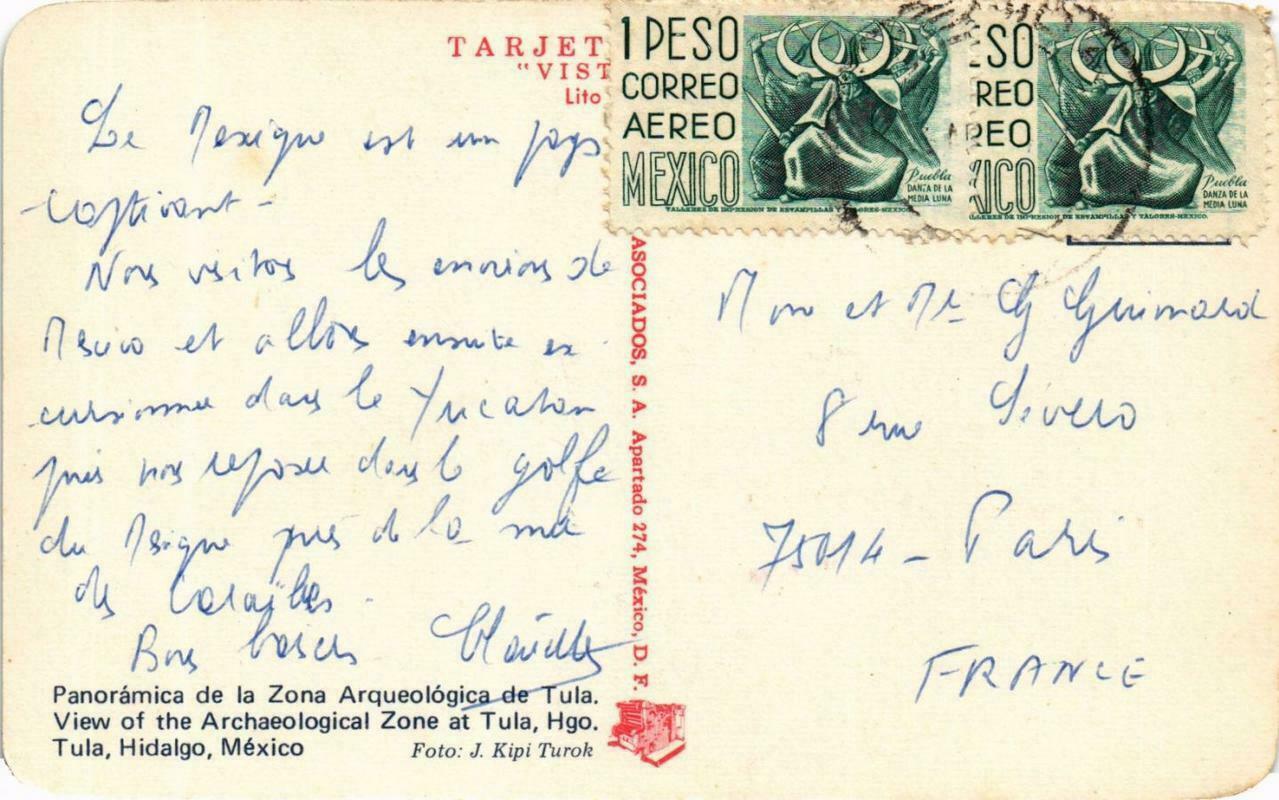 TARJET
"VIST
Lito
1 PESO
CORREO
AEREO
MEXICO
Puebla
DANZA DE LA
MEDIA LUNA
TALLERES DE IMPRESION DE ESTAMPILLAS Y VALORES-MEXICO.
ESO
REO
REO
XICO
Puebla
DANZA DE LA
MEDIA LUNA
LLERES DE IMPRESION DE ESTAMPILLAS Y VALORES-MEXICO.
Le Mexique est un pays
captivant -
Nous visitons les environs de
Mexico et allons ensuite ex
cursionner dans le Yucatan
puis nous reposer dans le golfe
du Mexique près de la mer
des Caraïbes.
Bons baisers
ASOCIADOS, S. A. Apartado 274, México, D. F.
Mme et Mr G Guimard
8 rue Sivero
75014 - Paris
FRANCE
Panorámica de la Zona Arqueológica de Tula.
View of the Archaeological Zone at Tula, Hgo.
Tula, Hidalgo, México
Foto: J. Kipi Turok